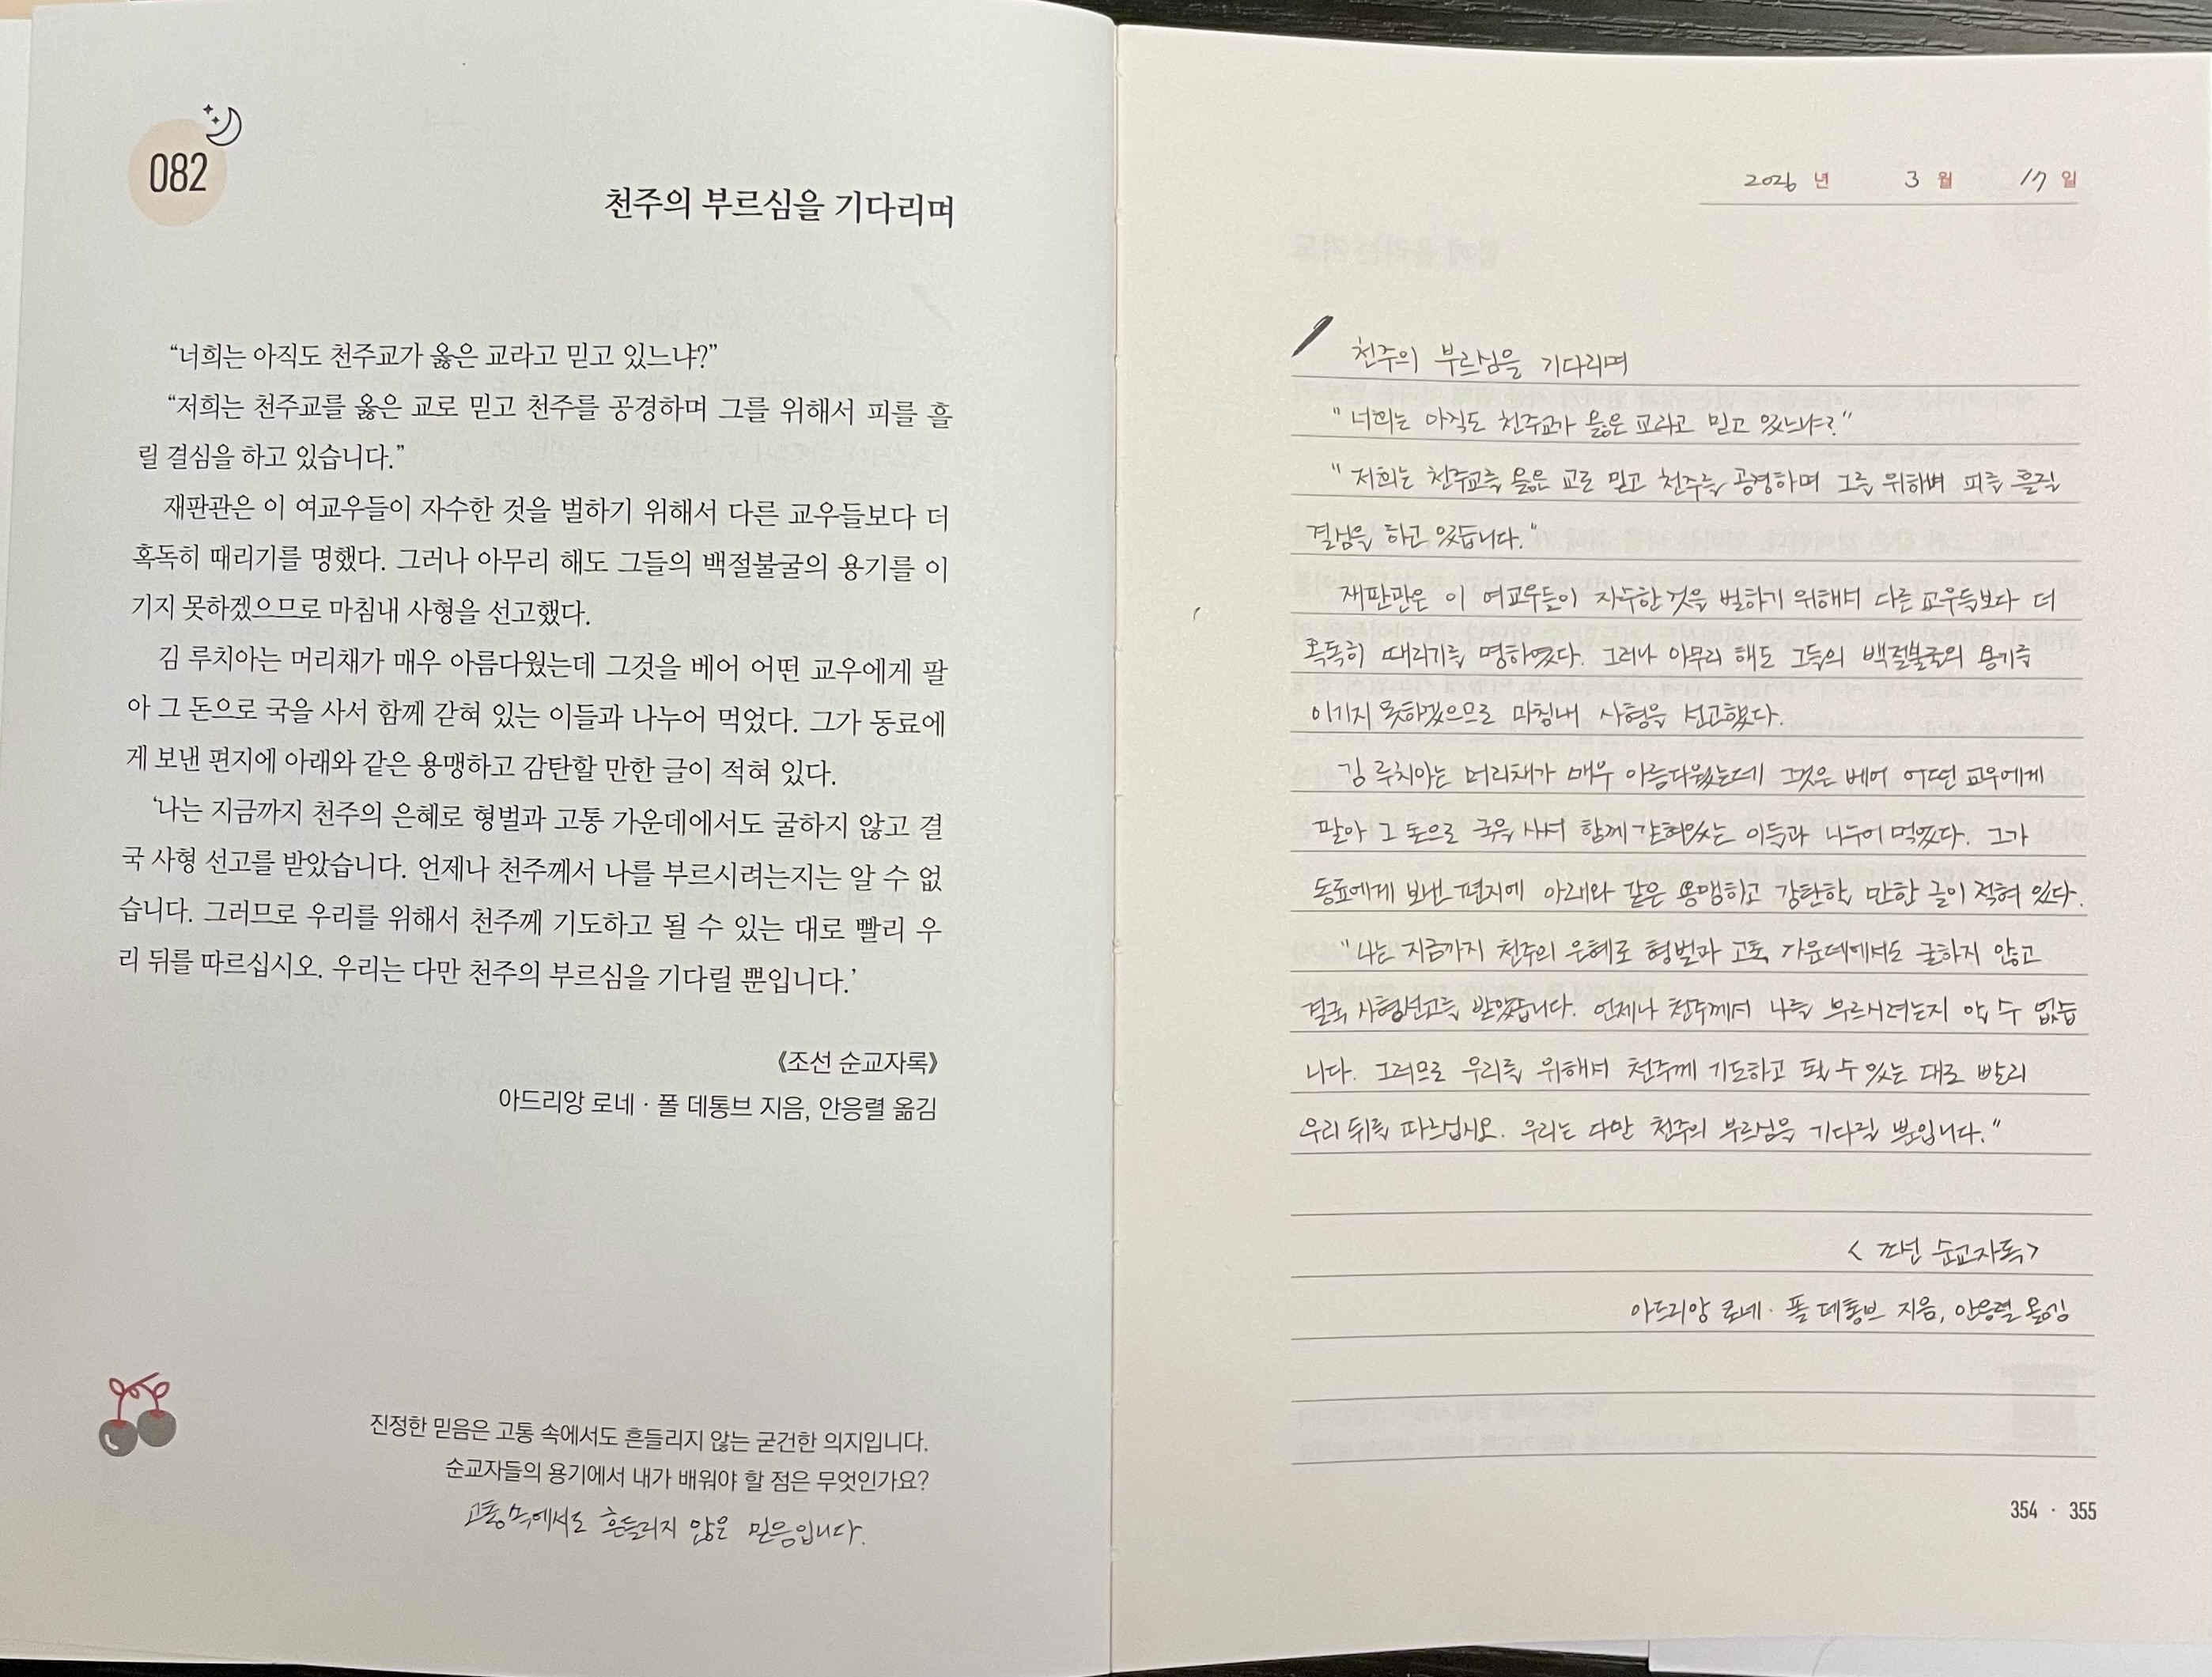 082
천주의 부르심을 기다리며
“너희는 아직도 천주교가 옳은 교라고 믿고 있느냐?”
“저희는 천주교를 옳은 교로 믿고 천주를 공경하며 그를 위해서 피를 흘
릴 결심을 하고 있습니다.”
재판관은 이 여교우들이 자수한 것을 벌하기 위해서 다른 교우들보다 더
혹독히 때리기를 명했다. 그러나 아무리 해도 그들의 백절불굴의 용기를 이
기지 못하겠으므로 마침내 사형을 선고했다.
김 루치아는 머리채가 매우 아름다웠는데 그것을 베어 어떤 교우에게 팔
아 그 돈으로 국을 사서 함께 갇혀 있는 이들과 나누어 먹었다. 그가 동료에
게 보낸 편지에 아래와 같은 용맹하고 감탄할 만한 글이 적혀 있다.
‘나는 지금까지 천주의 은혜로 형벌과 고통 가운데에서도 굴하지 않고 결
국 사형 선고를 받았습니다. 언제나 천주께서 나를 부르시려는지는 알 수 없
습니다. 그러므로 우리를 위해서 천주께 기도하고 될 수 있는 대로 빨리 우
리 뒤를 따르십시오. 우리는 다만 천주의 부르심을 기다릴 뿐입니다.’
《조선 순교자록》
아드리앙 로네 · 폴 데통브 지음, 안응렬 옮김
진정한 믿음은 고통 속에서도 흔들리지 않는 굳건한 의지입니다.
순교자들의 용기에서 내가 배워야 할 점은 무엇인가요?
고통 속에서도 흔들리지 않은 믿음입니다.
2026 년 3 월 17 일
천주의 부르심을 기다리며
"너희는 아직도 천주교가 옳은 교라고 믿고 있느냐?"
"저희는 천주교를 옳은 교로 믿고 천주를 공경하며 그를 위하며 피를 흘릴
결심을 하고 있습니다."
재판관은 이 여교우들이 자수한 것을 벌하기 위해서 다른 교우들보다 더
혹독히 때리기를 명하였다. 그러나 아무리 해도 그들의 백절불굴의 용기를
이기지 못하겠으므로 마침내 사형을 선고했다.
김 루치아는 머리채가 매우 아름다웠는데 그것은 베어 어떤 교우에게
팔아 그 돈으로 국을 사서 함께 갇혀있는 이들과 나누어 먹었다. 그가
동료에게 보낸 편지에 아래와 같은 용맹하고 감탄할 만한 글이 적혀 있다.
"나는 지금까지 천주의 은혜로 형벌과 고통 가운데에서도 굴하지 않고
결국 사형선고를 받았습니다. 언제나 천주께서 나를 부르시려는지 알 수 없습
니다. 그러므로 우리를 위해서 천주께 기도하고 될 수 있는 대로 빨리
우리 뒤를 따르십시오. 우리는 다만 천주의 부르심을 기다릴 뿐입니다."
< 조선 순교자록>
아드리앙 로네 · 폴 데통브 지음, 안응렬 옮김
354 · 355